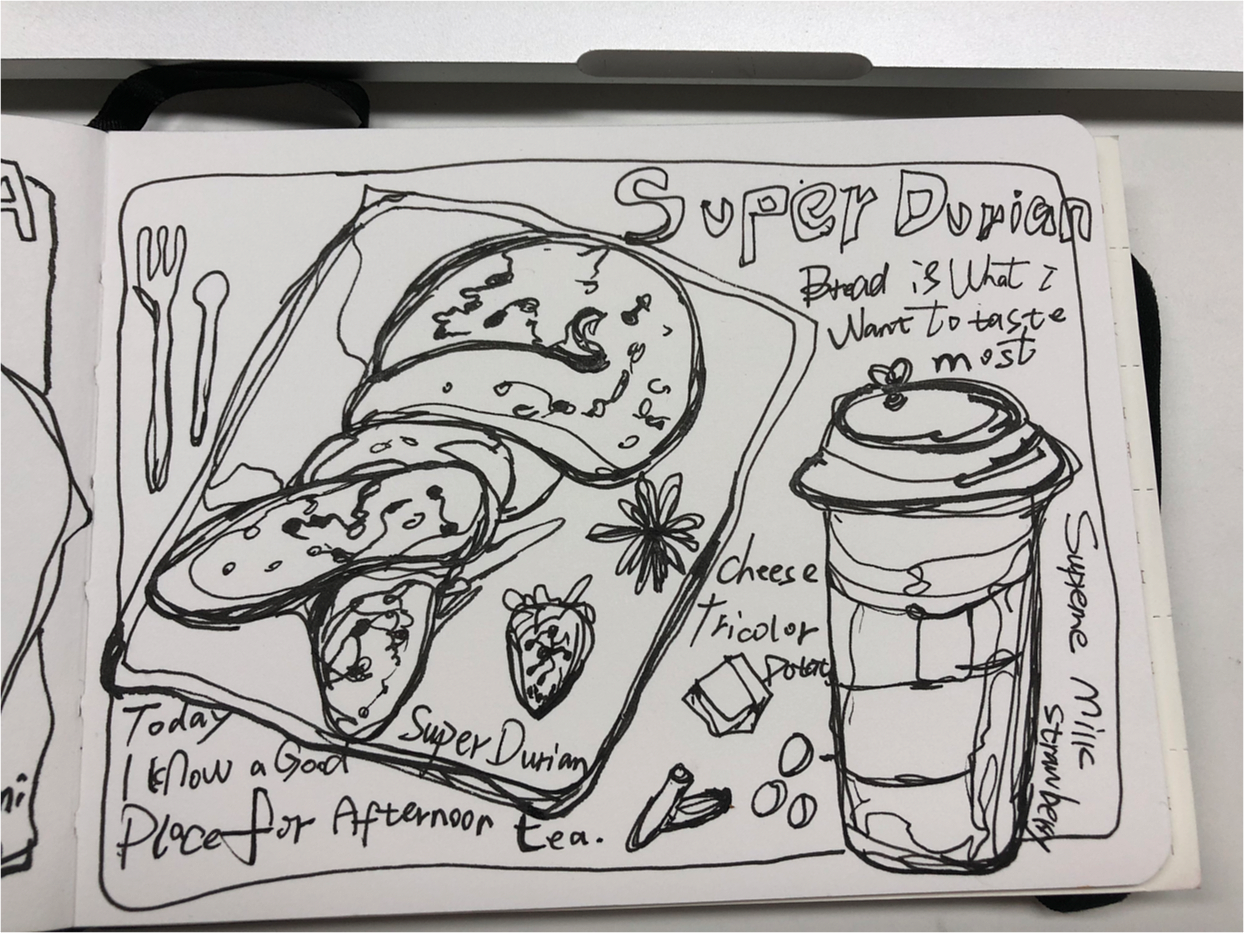 A
Super Durian
Bread is What i
Want To taste
most
Cheese
Tricolor
Supeme Milk
strawberry
Super Durian
Today
I know a Good
Place for Afternoon tea.
ni